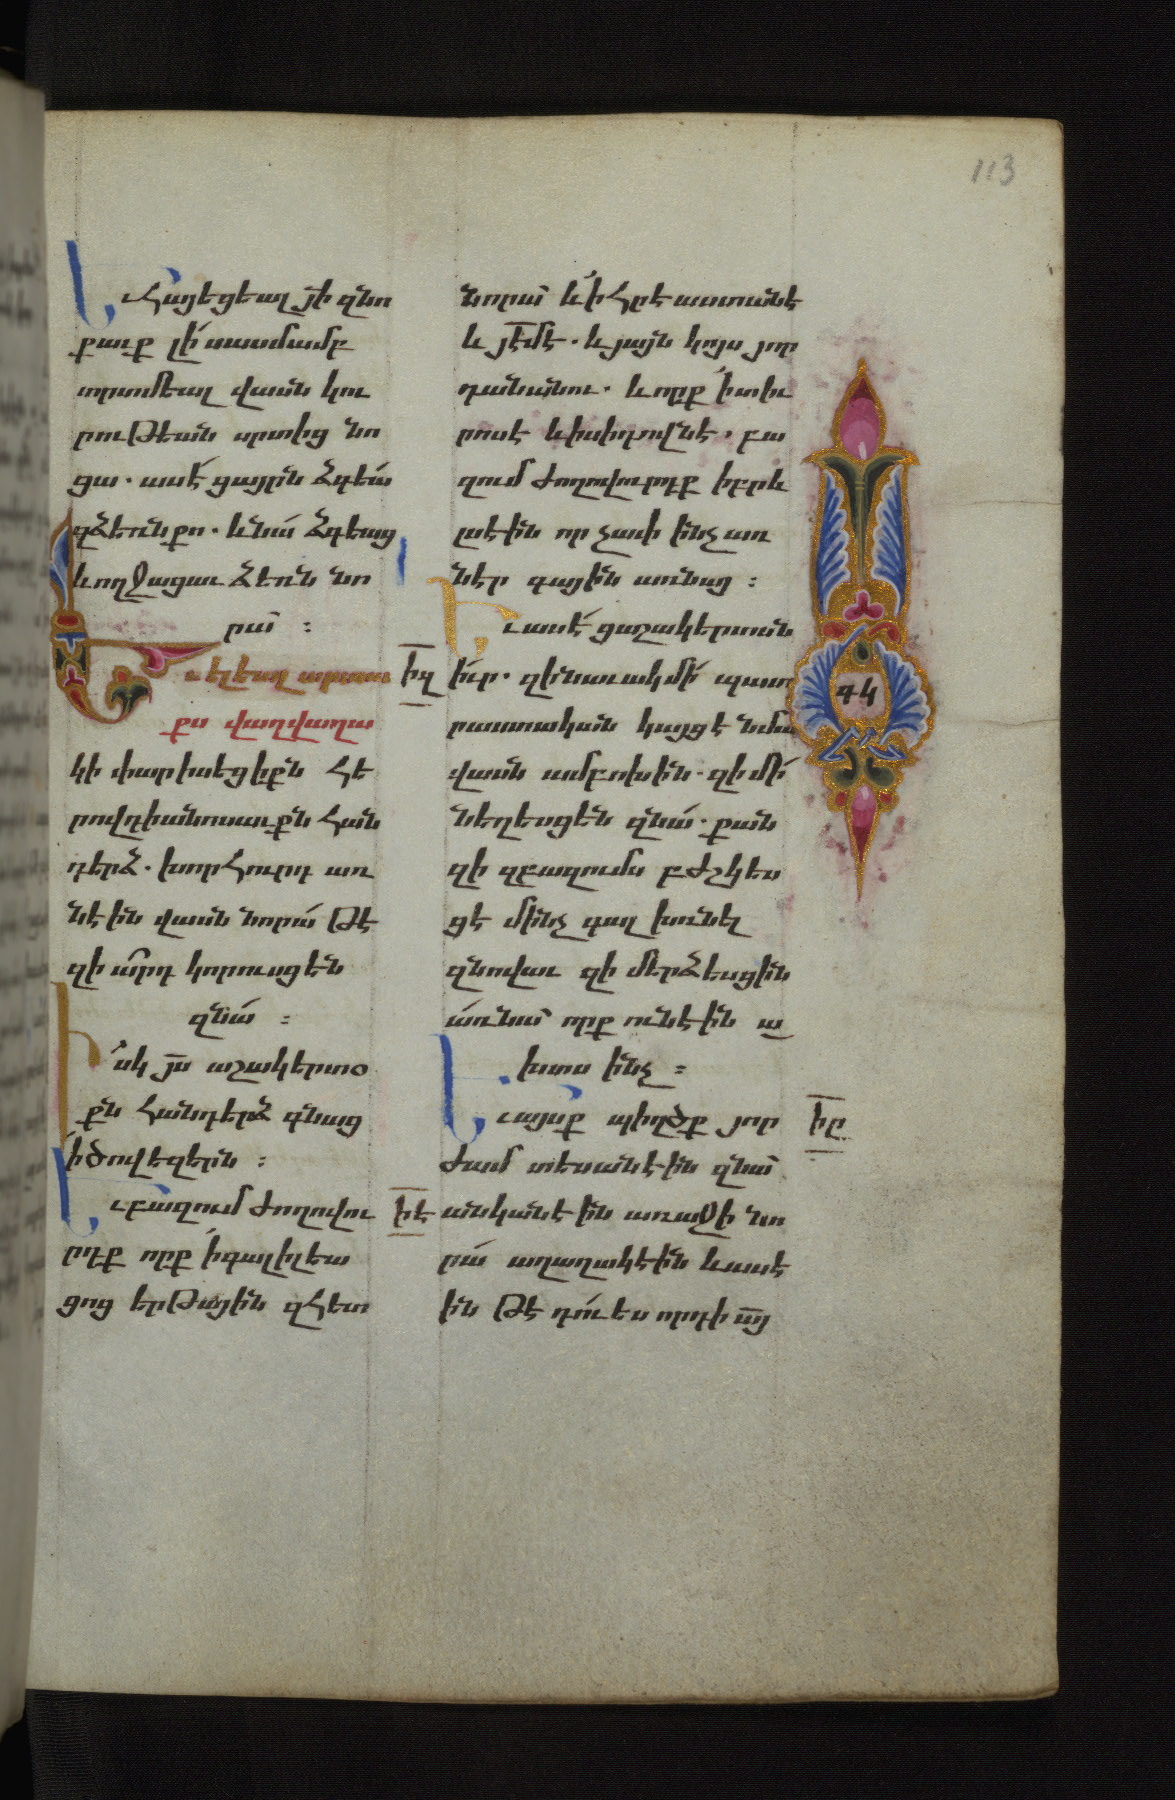 113
Եւ հայեցեալ յի զնո
քաւք լի սասմամբ
տրտմեալ վասն կու
րութեան սրտից նո
ցա. ասէ ցայրն ձգեա
զձեռն քո. և նա ձգեաց
և ողջացաւ ձեռն նո
րա :
Եւ ելեալ արտա
քս վաղվաղա
կի փարիսեցիքն հե
րովդիանոսաւքն հան
դերձ. խորհուրդ առ
նէին վասն նորա թէ
զի արդ կորուսցեն
զնա :
Իսկ յս աշակերտօ
քն հանդերձ գնաց
ի ծովեզերն :
Եւ բազում ժողովու
րդք որք ի գալիլեա
ցոց երթային զհետ
նորա և ի հրեաստանէ
և յեմէ. և յայն կոյս յոր
դանանու. և որք ի տիւ
րոսէ և ի սիդովնէ. բա
զում ժողովուրդք իբրև
լսէին որ չափ ինչ առ
նէր գային առնա :
Եւ ասէ ցաշակերտսն
իւր. զի նաւակ մի պատ
րաստական կայցէ նմա
վասն ամբոխին. զի մի
նեղեսցեն զնա. քան
զի զբազումս բժշկես
ցէ մինչ գալ խռնել
զնովաւ զի մերձեսցին
առ նա որք ունէին ա
խտս ինչ :
Եւ այսք պիղծք յոր
ժամ տեսանէին զնա
անկանէին առաջի նո
րա աղաղակէին և ասէ
ին թէ դու ես որդի այ
իզ
իէ
իը
գկ